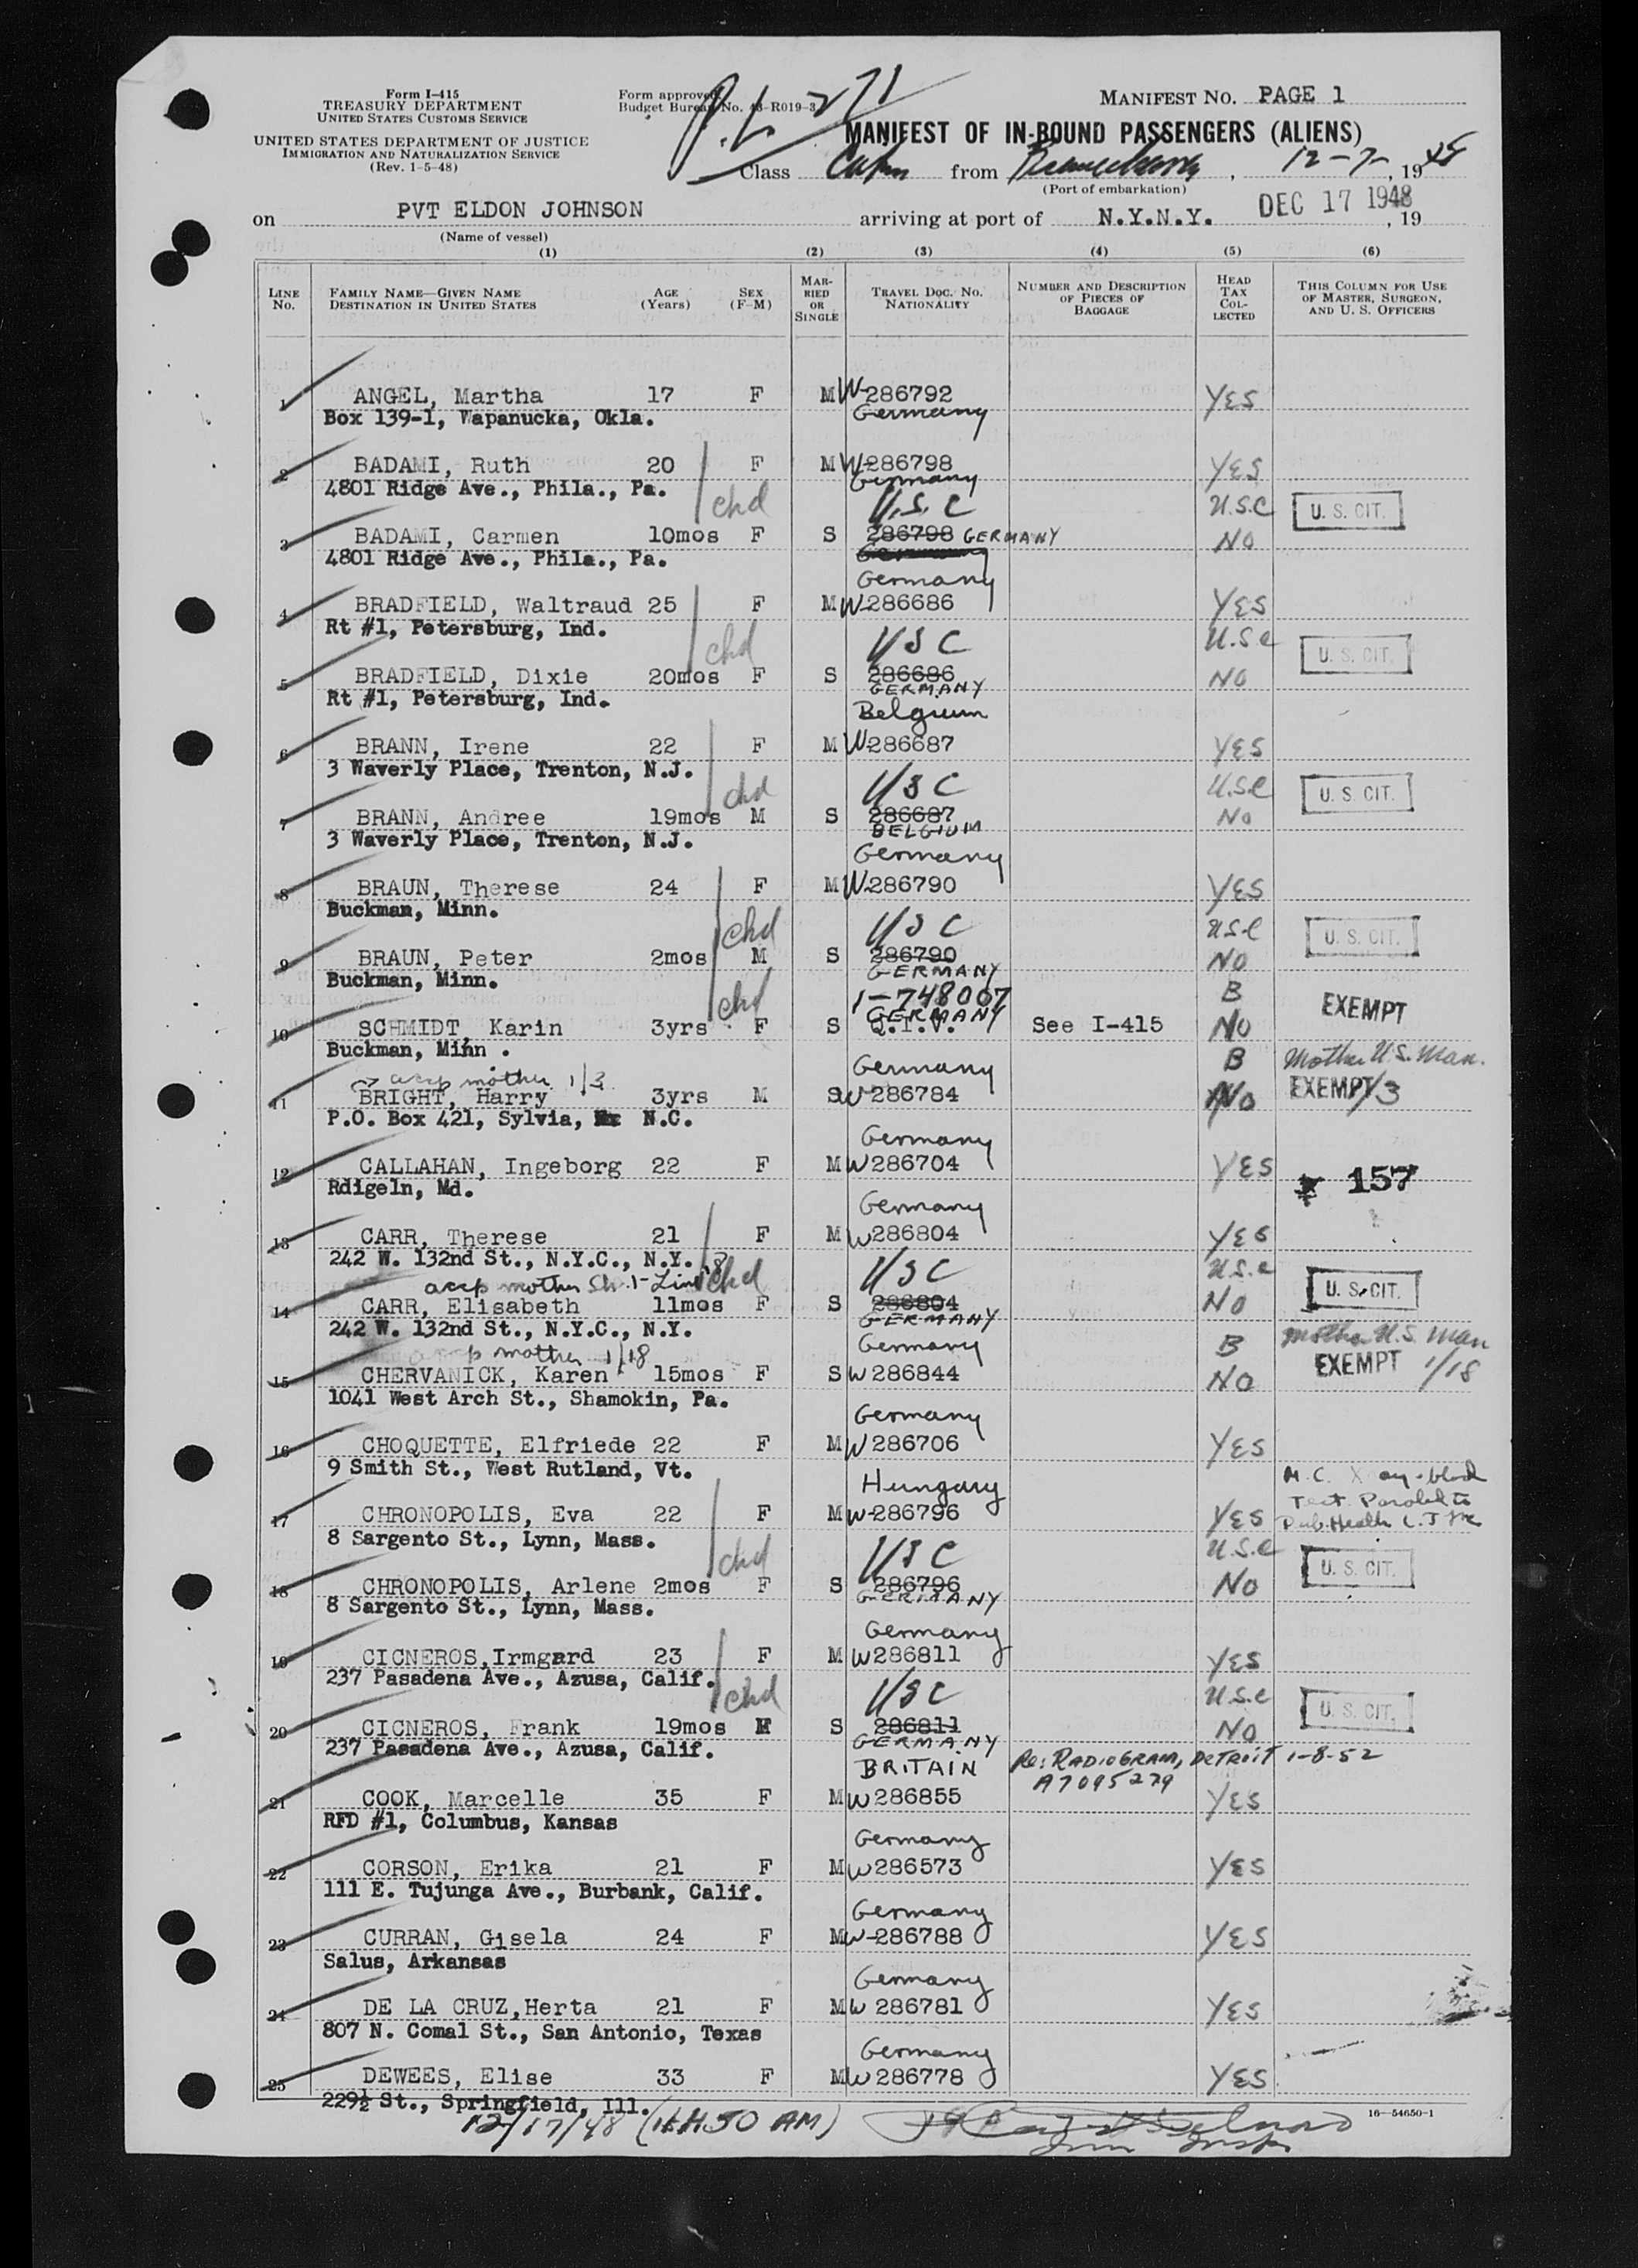 Form I-415
TREASURY DEPARTMENT
UNITED STATES CUSTOMS SERVICE
UNITED STATES DEPARTMENT OF JUSTICE
IMMIGRATION AND NATURALIZATION SERVICE
(Rev. 1-5-48)
Form approved.
Budget Bureau No. 43-R019-3
P.L-271
MANIFEST NO. PAGE 1
MANIFEST OF IN-BOUND PASSENGERS (ALIENS)
Class Cabin from Bremerhaven, 12-7-, 1948
(Port of embarkation)
on PVT ELDON JOHNSON arriving at port of N.Y.N.Y. DEC 17 1948, 19
(Name of vessel)
(1) (2) (3) (4) (5) (6)
LINE No. FAMILY NAME—GIVEN NAME DESTINATION IN UNITED STATES AGE (Years) SEX (F-M) MARRIED OR SINGLE TRAVEL DOC. NO. NATIONALITY NUMBER AND DESCRIPTION OF PIECES OF BAGGAGE HEAD TAX COLLECTED THIS COLUMN FOR USE OF MASTER, SURGEON, AND U. S. OFFICERS
1 ANGEL, Martha 17 F M W-286792 YES
Box 139-1, Wapanucka, Okla. Germany
2 BADAMI, Ruth 20 F M W-286798 YES
4801 Ridge Ave., Phila., Pa. Germany
chd U.S.C U.S.C U. S. CIT.
3 BADAMI, Carmen 10mos F S 286798 GERMANY NO
4801 Ridge Ave., Phila., Pa.
Germany
4 BRADFIELD, Waltraud 25 F M W-286686 YES
Rt #1, Petersburg, Ind.
chd USC U.S.C U. S. CIT.
5 BRADFIELD, Dixie 20mos F S 286686 NO
Rt #1, Petersburg, Ind. GERMANY
Belgium
6 BRANN, Irene 22 F M W-286687 YES
3 Waverly Place, Trenton, N.J.
chd USC U.S.C U. S. CIT.
7 BRANN, Andree 19mos M S 286687 No
3 Waverly Place, Trenton, N.J. BELGIUM
Germany
8 BRAUN, Therese 24 F M W-286790 YES
Buckman, Minn.
chd USC U.S.C U. S. CIT.
9 BRAUN, Peter 2mos M S 286790 NO
Buckman, Minn. GERMANY
chd 1-748007 B EXEMPT
GERMANY
10 SCHMIDT, Karin 3yrs F S Q.I.V. See I-415 NO
Buckman, Minn .
Germany B Mother U.S. Man.
accp mother 1/3
11 BRIGHT, Harry 3yrs M S W-286784 No EXEMPT 1/3
P.O. Box 421, Sylvia, N.C.
Germany
12 CALLAHAN, Ingeborg 22 F M W 286704 YES 157
Rdigeln, Md.
Germany
13 CARR, Therese 21 F M W 286804 YES
242 W. 132nd St., N.Y.C., N.Y.
accp mother chd USC U.S.C U. S. CIT.
14 CARR, Elisabeth 11mos F S 286804 NO
242 W. 132nd St., N.Y.C., N.Y. GERMANY
accp mother 1/18 Germany B Mother U.S. Man
15 CHERVANICK, Karen 15mos F S W 286844 NO EXEMPT 1/18
1041 West Arch St., Shamokin, Pa.
Germany
16 CHOQUETTE, Elfriede 22 F M W 286706 YES
9 Smith St., West Rutland, Vt.
Hungary M.C. X ray-blood
Test. Paroled to
17 CHRONOPOLIS, Eva 22 F M W-286796 YES Pub. Health
8 Sargento St., Lynn, Mass.
chd USC U.S.C U. S. CIT.
18 CHRONOPOLIS, Arlene 2mos F S 286796 NO
8 Sargento St., Lynn, Mass. GERMANY
Germany
19 CICNEROS,Irmgard 23 F M W 286811 YES
237 Pasadena Ave., Azusa, Calif.
chd USC U.S.C U. S. CIT.
20 CICNEROS, Frank 19mos M S 286811 NO
237 Pasadena Ave., Azusa, Calif. GERMANY
BRITAIN Re: RADIOGRAM, DETROIT 1-8-52
A7095279
21 COOK, Marcelle 35 F M W 286855 YES
RFD #1, Columbus, Kansas
Germany
22 CORSON, Erika 21 F M W 286573 YES
111 E. Tujunga Ave., Burbank, Calif.
Germany
23 CURRAN, Gisela 24 F M W-286788 YES
Salus, Arkansas
Germany
24 DE LA CRUZ,Herta 21 F M W 286781 YES
807 N. Comal St., San Antonio, Texas
Germany
25 DEWEES, Elise 33 F M W 286778 YES
229½ St., Springfield, Ill.
12/17/48 AM)
16—54650-1